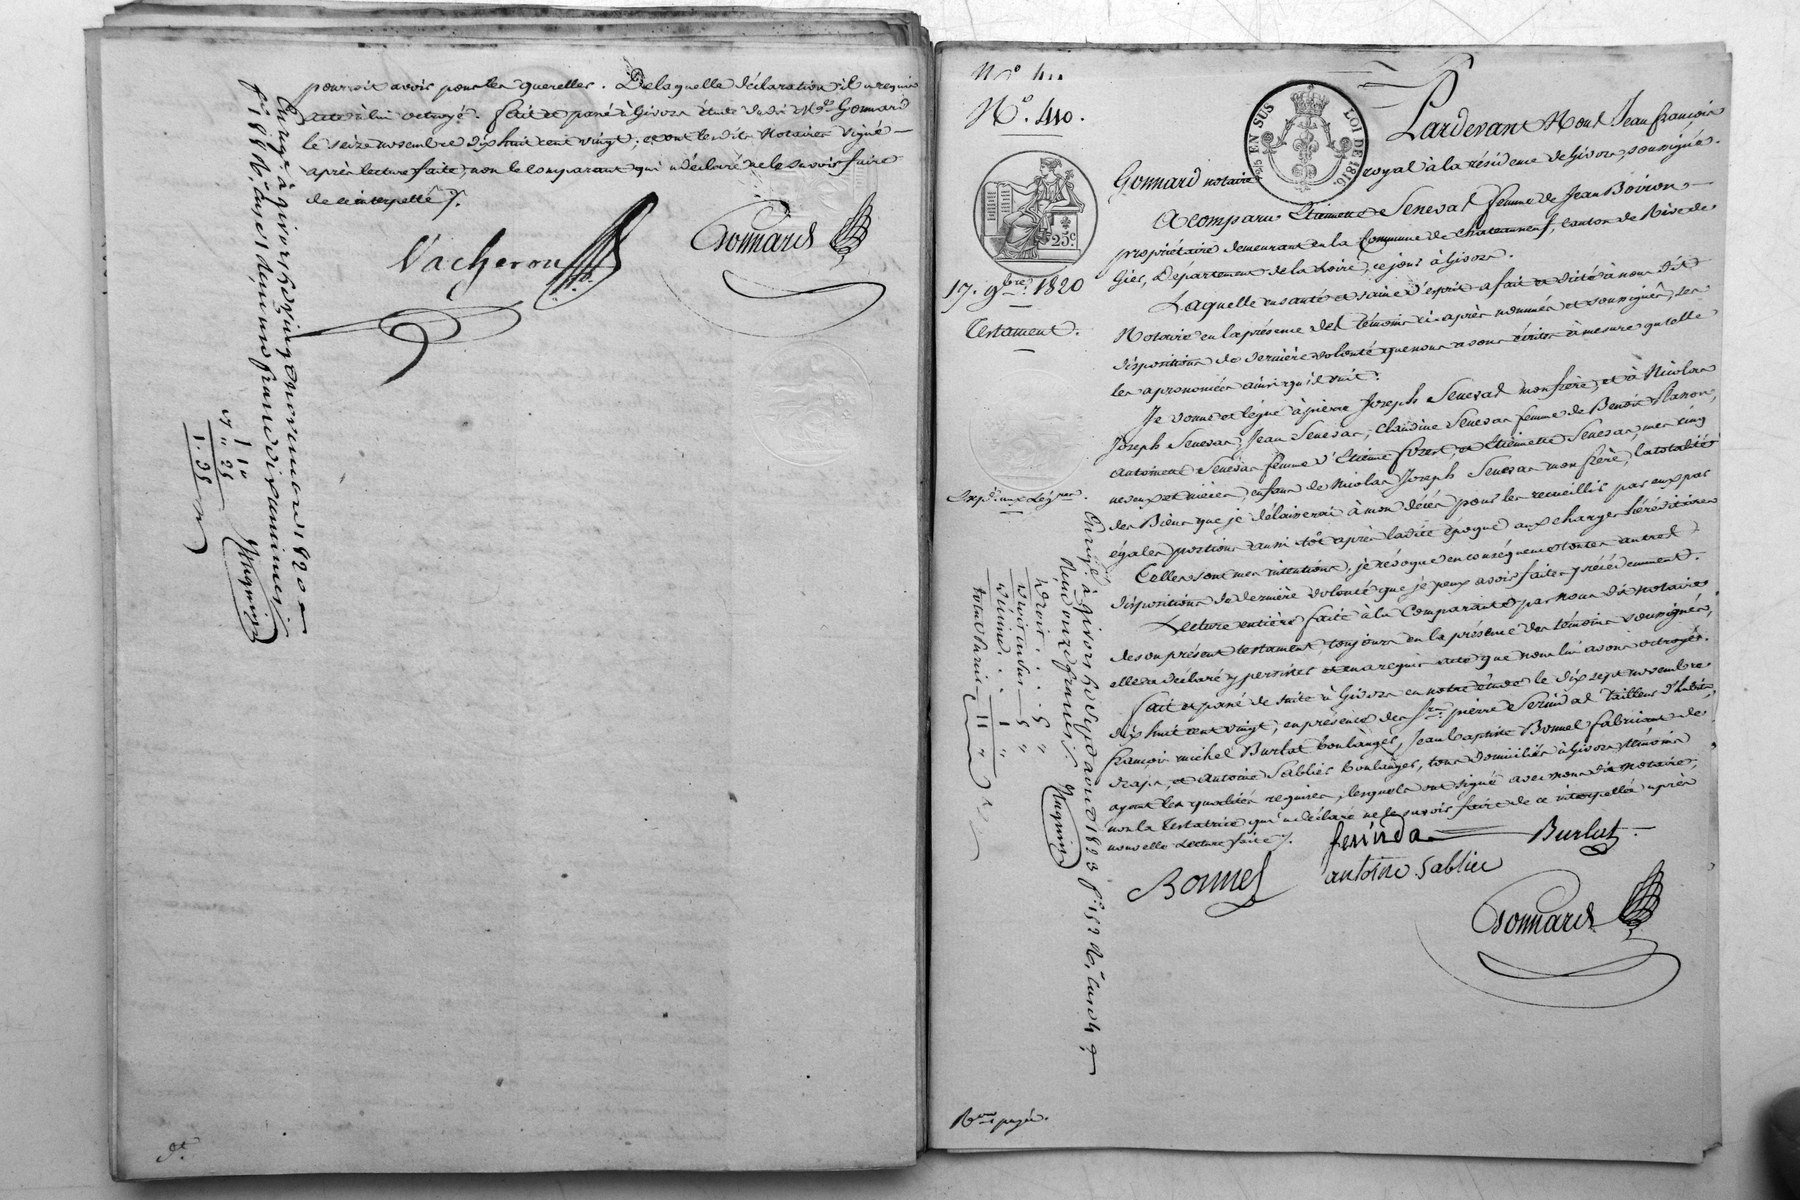 pourroit avoir pour les querelles. De laquelle déclaration il a requis
acte à lui octroyé. fait et passé à Givors étude dudit Me Gonnard
le seize novembre dix huit cent vingt, et ont lesdits Notaires signé
après lecture faite, non le comparant qui a déclaré ne le savoir faire
de ce interpellé ./.
Vacheron
Gonnard
Enregé à givors le vingt novembre 1820
reçu un franc dix centimes
1 10
25
1.35
Huguin
N° 40.
EN SUS
LOI DE 1816.
25c
17. 9bre 1820
Testament.
Pardevant Nous Jean françois
Gonnard notaire royal à la résidence de Givors, soussigné.
A comparu Etiennette Seneval femme de Jean Boiron
propriétaire demeurant en la Commune de Chateauneuf, canton de Rive de
Gier, Département de la Loire, ce jour à Givors.
Laquelle en santé et saine d'esprit a fait et dicté à nous dit
Notaire en la présence des témoins ci-après nommés et soussignés, ses
dispositions de dernière volonté que nous avons écrites à mesure qu'elle
les a prononcées ainsi qu'il suit:
Je donne et lègue à pierre Joseph Seneval mon frère, et à Nicolas
Joseph Seneval, Jean Seneval, Claudine Seneval femme de Benoit
Antoinette Seneval femme d'Etienne et Etiennette Seneval, mes cinq
neveux et nièces, enfans de Nicolas Joseph Seneval mon frère, la totalité
des Biens que je délaisserai à mon décès pour les recueillir par eux par
égales portions aussi-tôt après ladite époque aux charges héréditaires
Telles sont mes intentions, je révoque en conséquence toutes autres
dispositions de dernière volonté que je peux avoir faites précédemment.
Lecture entière faite à la Comparante par nous dit notaire
de son présent testament, toujours en la présence des témoins soussignés,
elle a déclaré y persister et en a requis acte que nous lui avons octroyé.
fait et passé de suite à Givors en notre étude le dix sept novembre
dix huit cent vingt, en présence des Srs pierre tailleur d'habits
françois michel Burlat boulanger, Jean baptiste Bonnel fabricant de
draps, et Antoine Sablier boulanger, tous domiciliés à Givors témoins
ayant les qualités requises, lesquels ont signé avec nous dit notaire,
non la testatrice qui a déclaré ne le savoir faire de ce interpellée après
nouvelle lecture faite ./.
Burlat
Bonnel
antoine Sablier
Gonnard
Enregé à Givors le sept août 1823
Reçu onze francs
Droit 5 "
1 "
11 "
Huguin